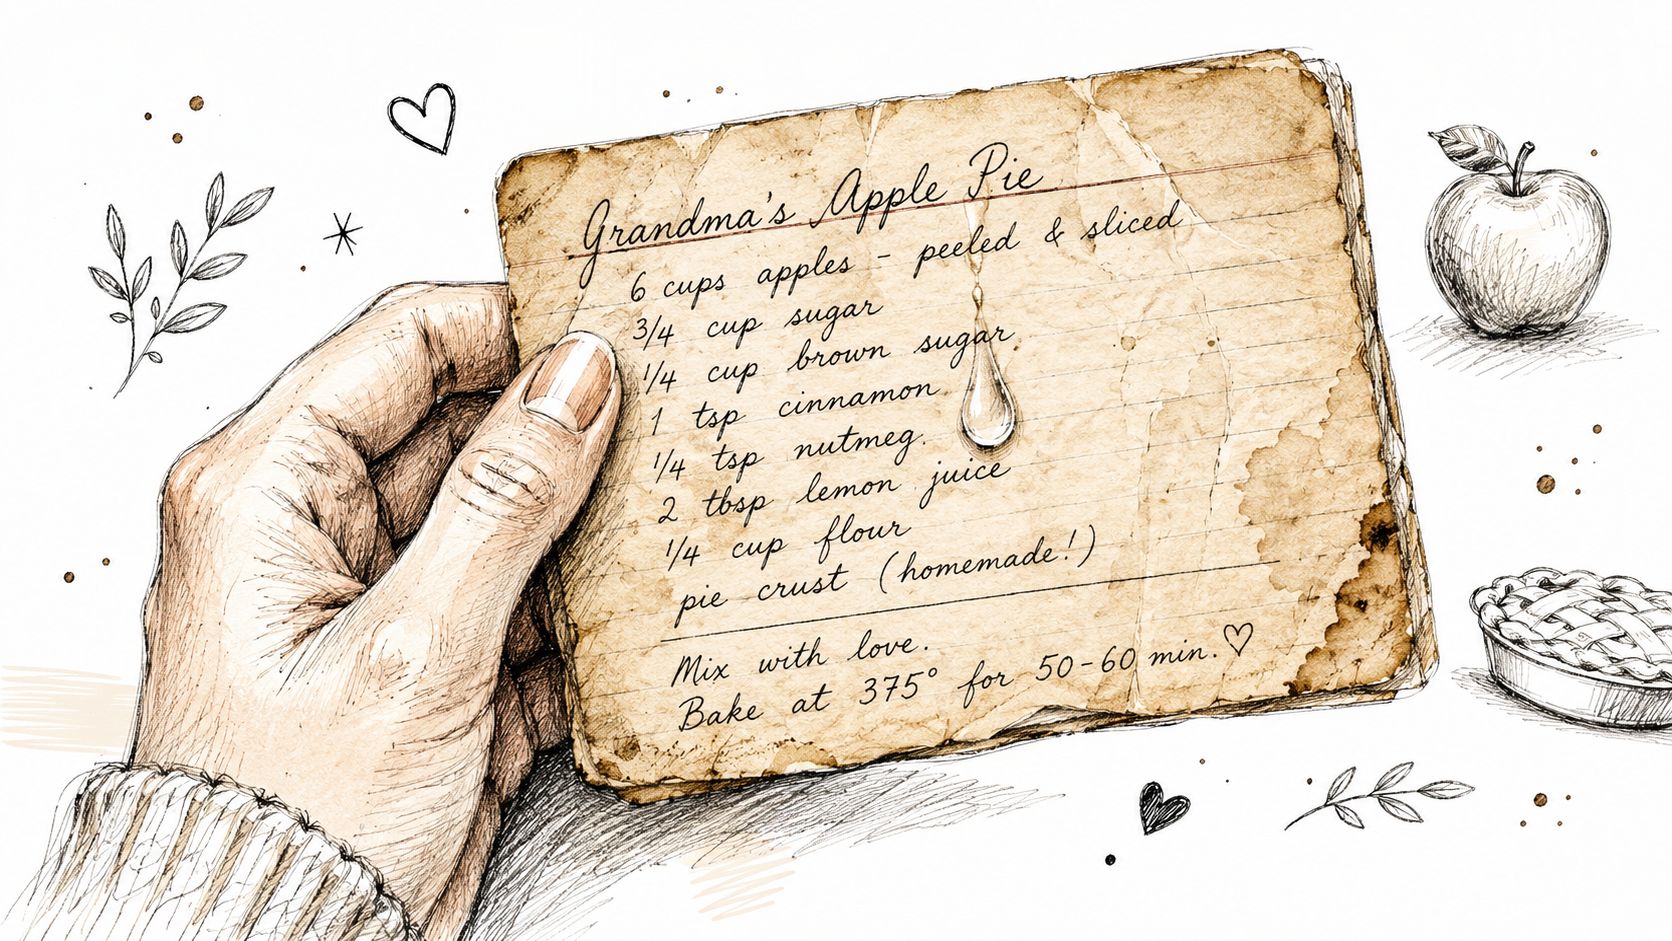 Grandma's Apple Pie
6 cups apples - peeled & sliced
3/4 cup sugar
1/4 cup brown sugar
1 tsp cinnamon
1/4 tsp nutmeg.
2 tbsp lemon juice
1/4 cup flour
pie crust (homemade!)
Mix with love.
Bake at 375° for 50-60 min. ♡